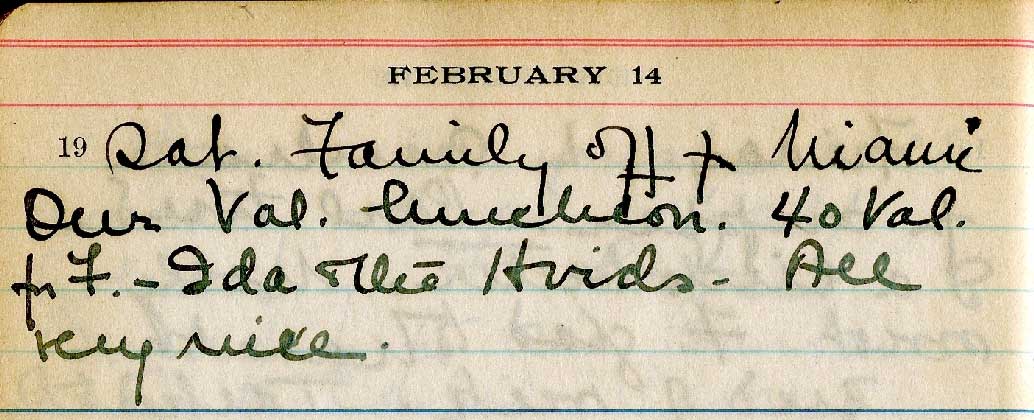 FEBRUARY 14
19 Sat. Family off for Miami
Our Val. luncheon. 40 Val.
for F. - Ida & the Hvids - All
very nice.